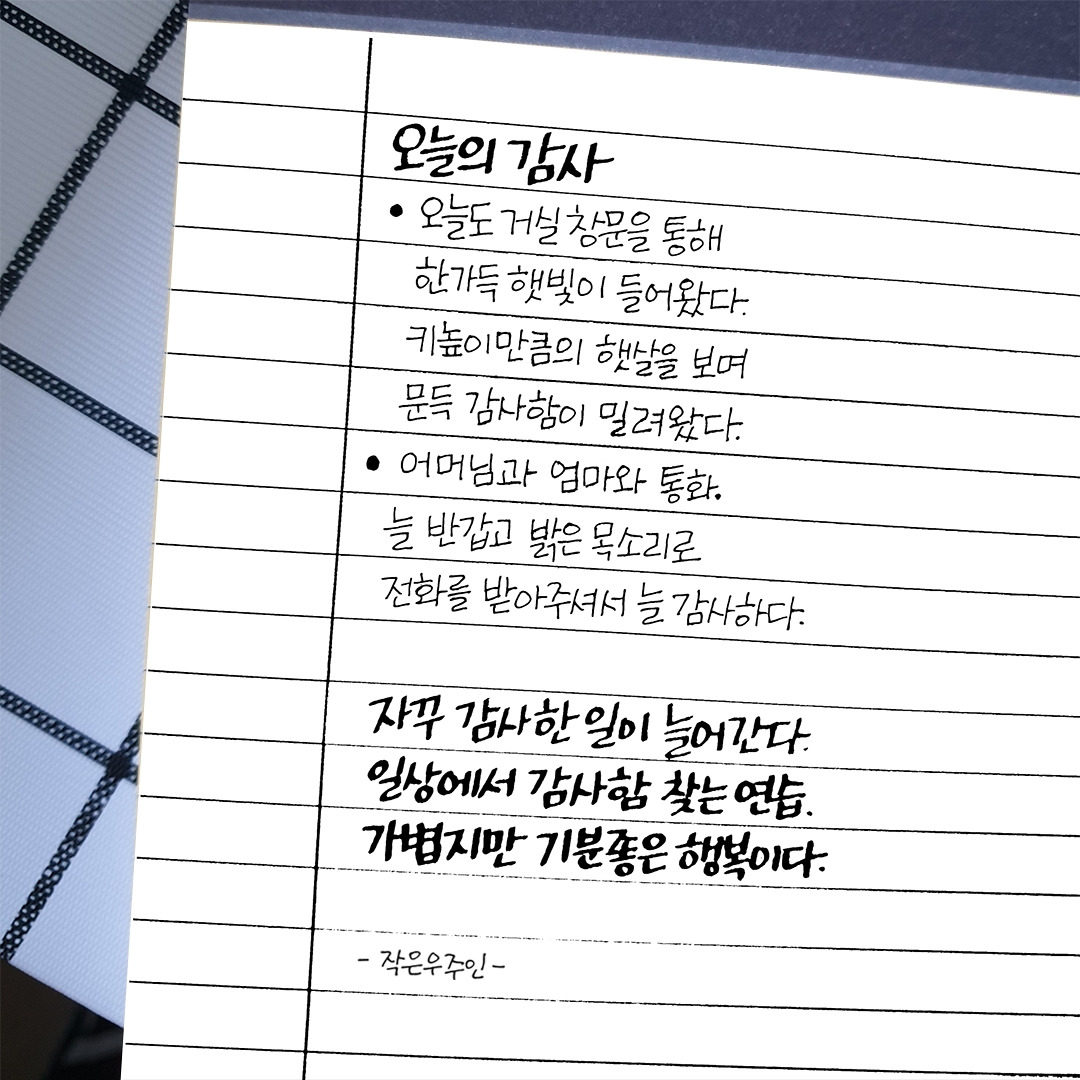 오늘의 감사
• 오늘도 거실 창문을 통해
한가득 햇빛이 들어왔다.
키높이만큼의 햇살을 보며
문득 감사함이 밀려왔다.
• 어머님과 엄마와 통화.
늘 반갑고 밝은 목소리로
전화를 받아주셔서 늘 감사하다.
자꾸 감사한 일이 늘어간다.
일상에서 감사함 찾는 연습.
가볍지만 기분좋은 행복이다.
- 작은우주인 -